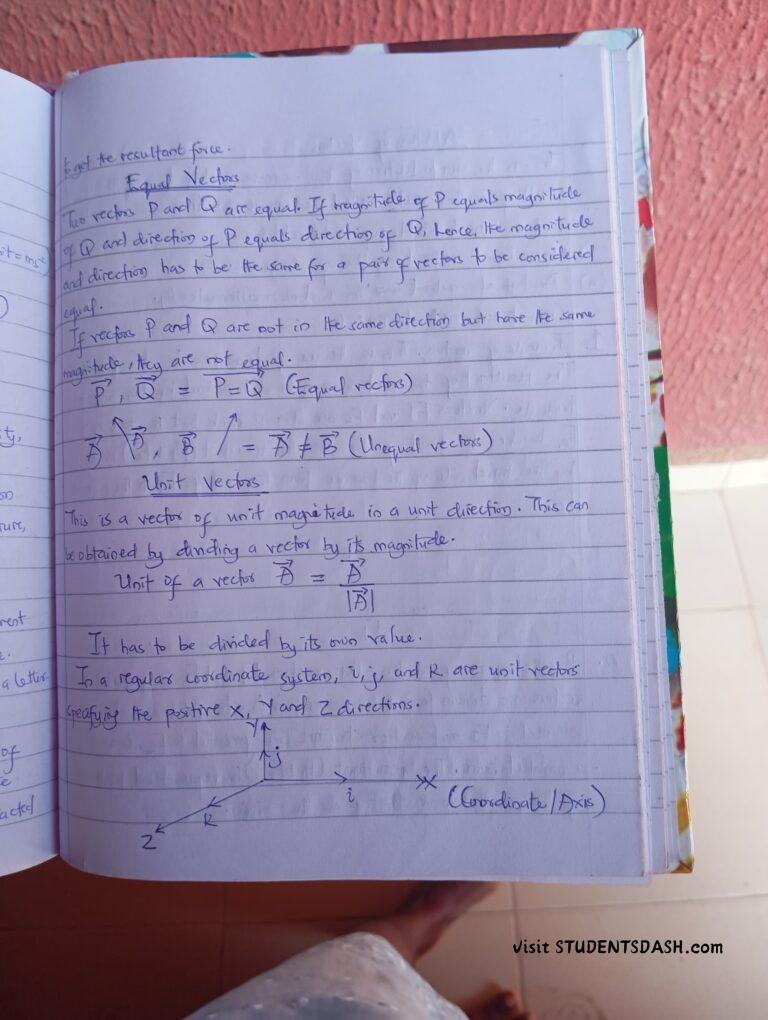 to get the resultant force.
Equal Vectors
Two vectors P and Q are equal. If magnitude of P equals magnitude
of Q and direction of P equals direction of Q, hence, the magnitude
and direction has to be the same for a pair of vectors to be considered
equal.
If vectors P and Q are not in the same direction but have the same
magnitude, they are not equal.
P⃗, Q⃗ = P=Q (Equal vectors)
A⃗ A⃗, B⃗ = A⃗ ≠ B⃗ (Unequal vectors)
Unit Vectors
This is a vector of unit magnitude in a unit direction. This can
be obtained by dividing a vector by its magnitude.
Unit of a vector A⃗ = A⃗
|A⃗|
It has to be divided by its own value.
In a regular coordinate system, i, j, and k are unit vectors
specifying the positive X, Y and Z directions.
Y
j
i X
(Coordinate/Axis)
k
Z
ity,
ture,
a letter
of
acted
Visit STUDENTSDASH.com